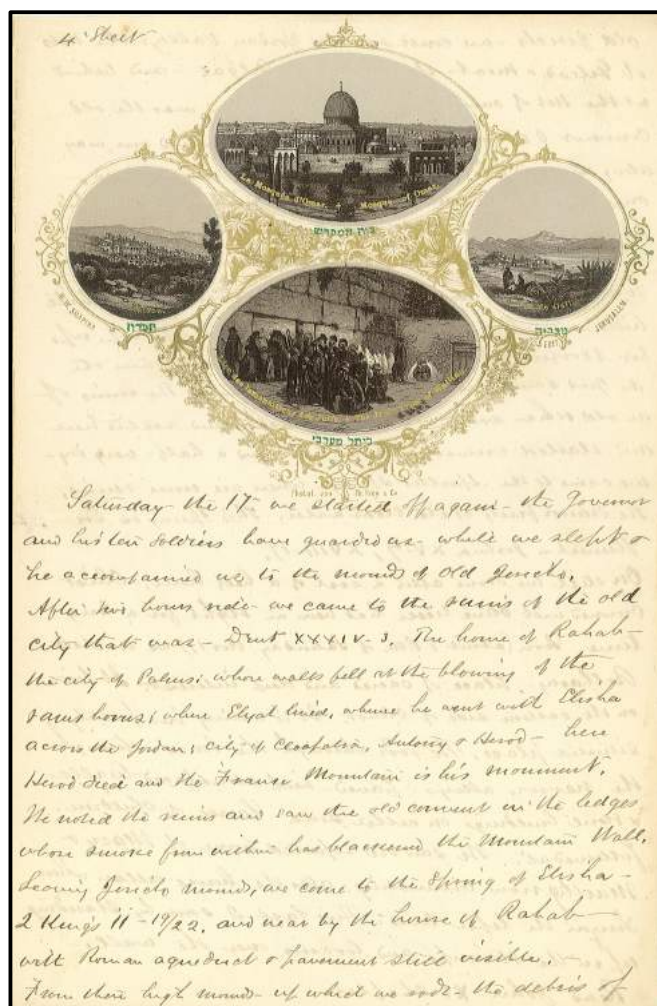 4' Sheet
La Mosquée d'Omar. Mosque of Omar.
בית המקדש
צפת
טבריה
כותל מערבי
M.W. SHAPIRA
Saturday the 17- we started off again- the Governor
and his ten soldiers have guarded us while we slept &
he accompanied us to the mounds of old Jericho.
After two hours ride- we came to the ruins of the old
city that was- Deut XXXIV-3. The home of Rahab-
the city of Palms: whose walls fell at the blowing of the
rams horns; where Elijah lived, where he went with Elisha
across the Jordan; city of Cleopatra, Antony & Herod- here
Herod died and the Mountain is his monument.
We noted the ruins and saw the old convent in the ledges
whose smoke from within has blackened the Mountain Wall.
Leaving Jericho mounds, we come to the Spring of Elisha-
2 Kings II-19/22. and near by the house of Rahab-
with Roman aqueduct & pavement still visible.-
From these high mounds- up which we rode- the debris of